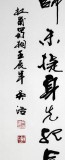 帅未捷身先死
杜甫蜀相 壬辰年 吴浩